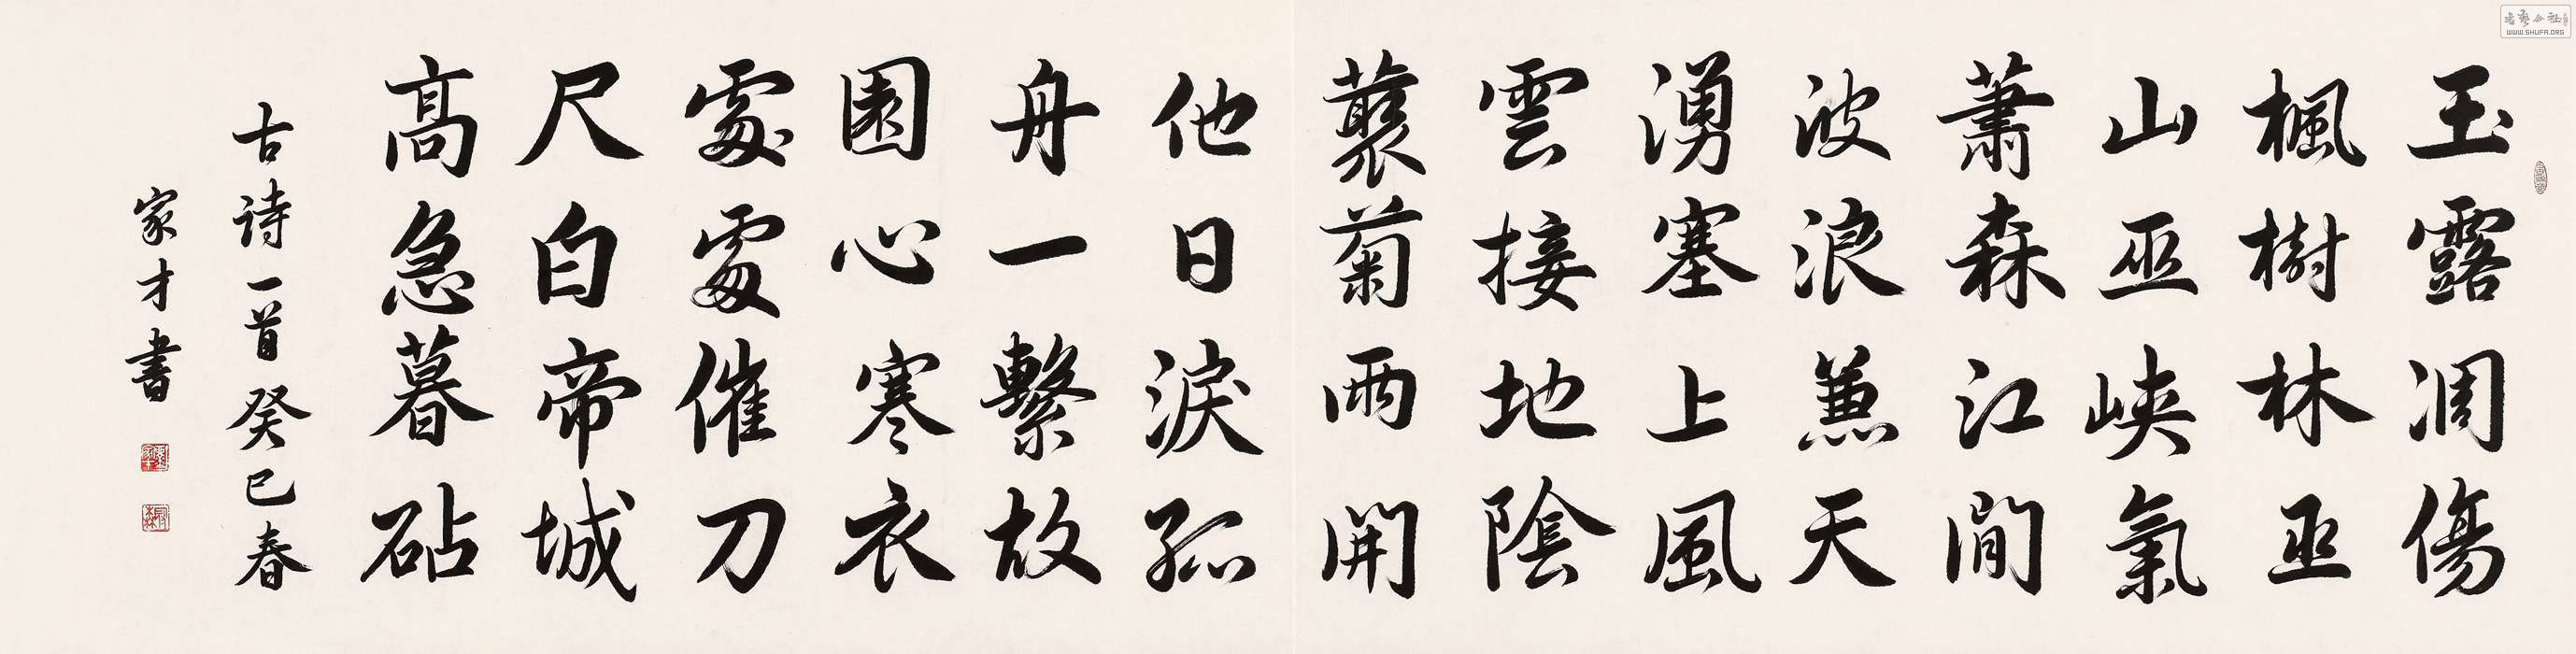 玉露凋傷
楓樹林巫
山巫峽氣
蕭森江間
波浪兼天
湧塞上風
雲接地陰
叢菊兩開
他日淚孤
舟一繫故
園心寒衣
處處催刀
尺白帝城
高急暮砧
古诗一首癸巳春
家才書
WWW.SHUFA.ORG